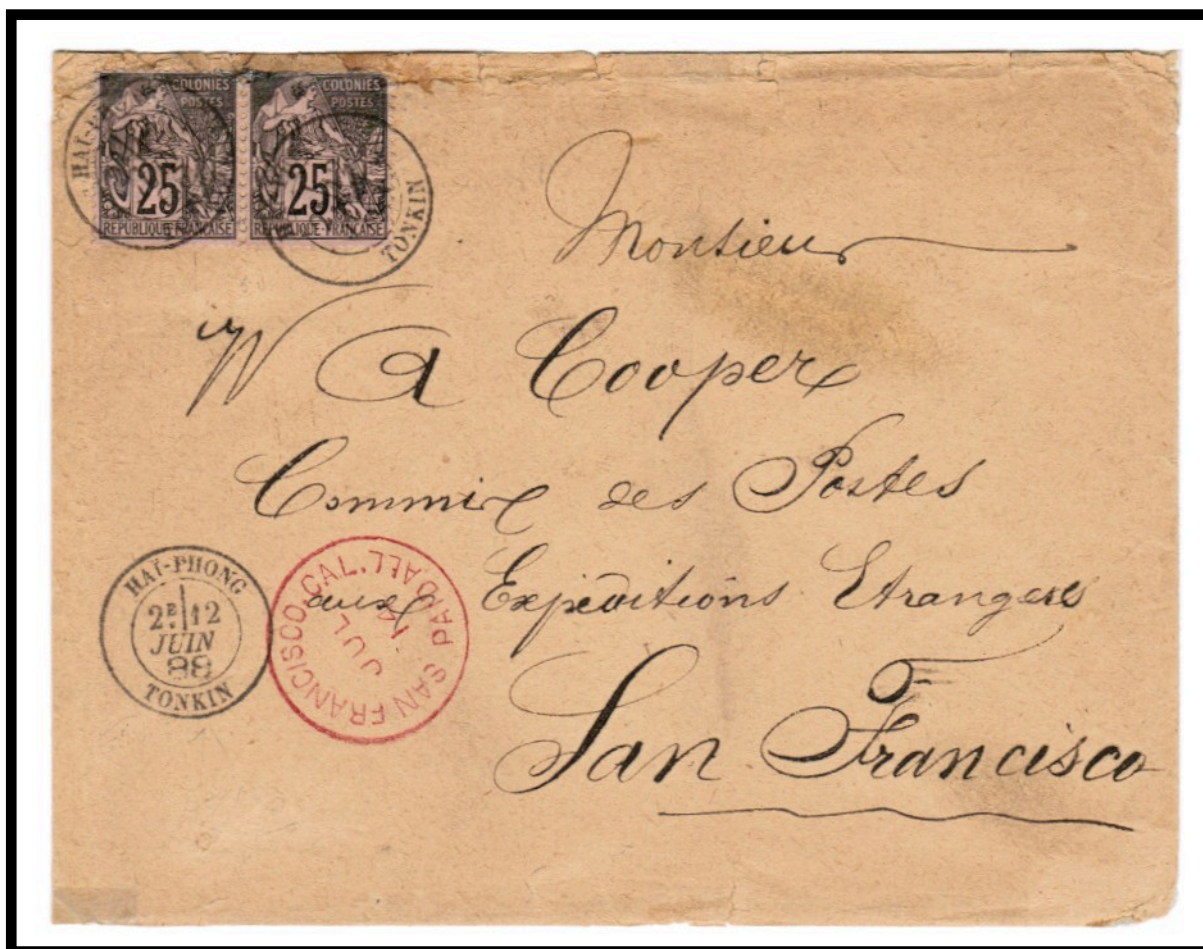 COLONIES
POSTES
25
REPUBLIQUE FRANCAISE
COLONIES
POSTES
25
REPUBLIQUE FRANCAISE
HAÏ-
TONKIN
Monsieur
W A Cooper
Commis des Postes
aux Expéditions Etrangeres
San Francisco
HAÏ-PHONG
2E 12
JUIN
88
TONKIN
SAN FRANCISCO, CAL.
PAID ALL
JUL
14